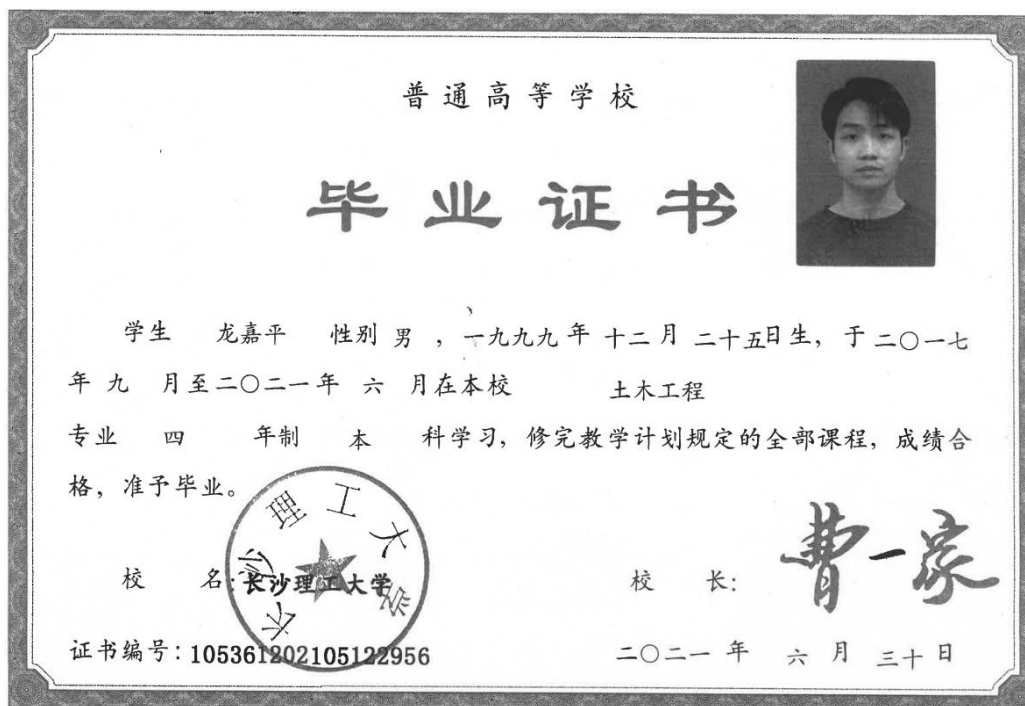 普通高等学校
毕业证书
学生 龙嘉平 性别 男 ，一九九九年 十二月 二十五日生，于二〇一七
年 九 月至二〇二一年 六 月在本校 土木工程
专业 四 年制 本 科学习，修完教学计划规定的全部课程，成绩合
格，准予毕业。
长沙理工大学
校 名：长沙理工大学 校 长：曹一家
证书编号：105361202105122956 二〇二一 年 六 月 三十 日